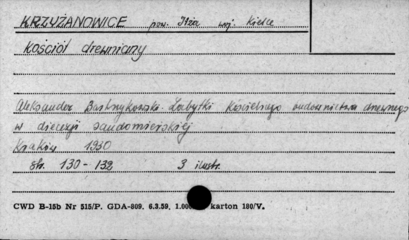 KRZYŻANOWICE pow. Iłża woj. Kielce
Kościół drewniany
Aleksander Bastrzykowski Zabytki Kościelnego budownictwa drewnego
w diecezji sandomierskiej
Kraków 1930
str. 130-132 3 ilustr.
CWD B-15b Nr 515/P. GDA-809. 6.3.59. 1.00 karton 180/V.